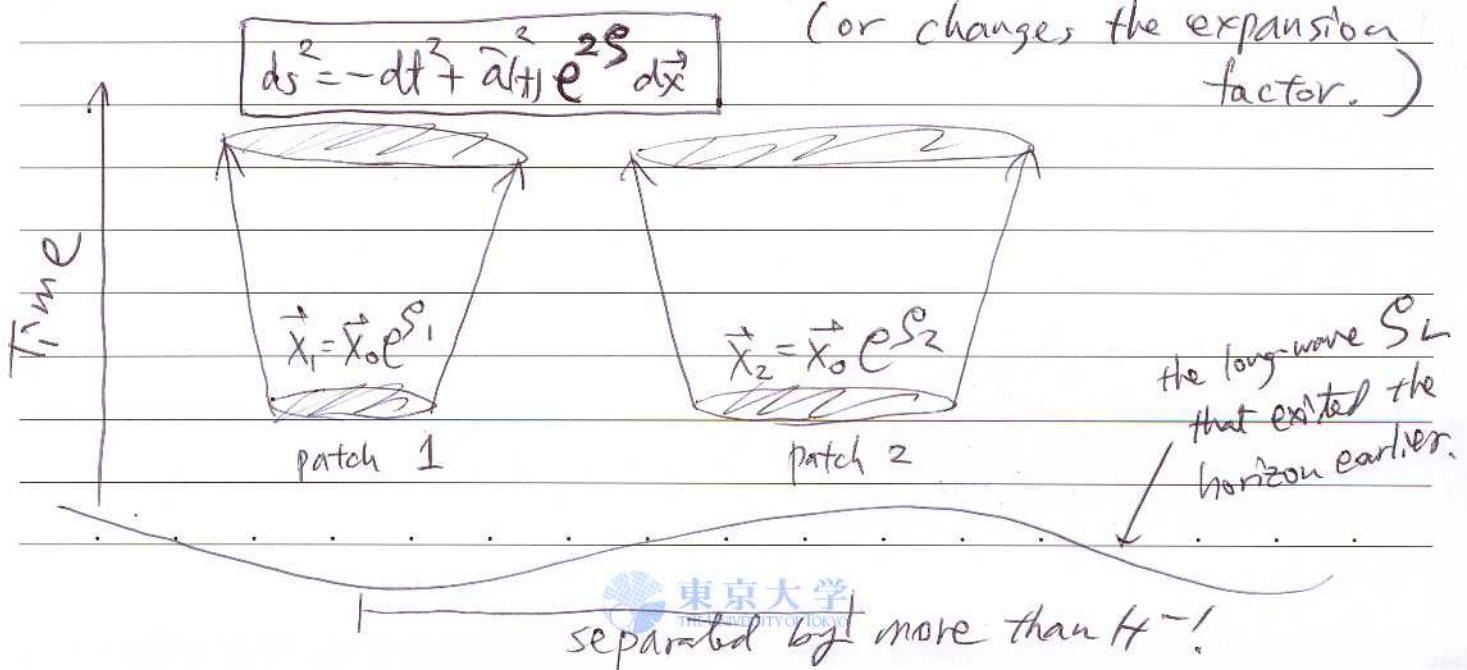 (or changes the expansion
factor.)
ds² = -dt² + a²(t) e^{2ζ} dx⃗
Time
x⃗₁ = x⃗₀ e^{ζ₁}
x⃗₂ = x⃗₀ e^{ζ₂}
patch 1
patch 2
the long-wave ζ_L
that exited the
horizon earlier.
東京大学
THE UNIVERSITY OF TOKYO
separated by more than H⁻¹